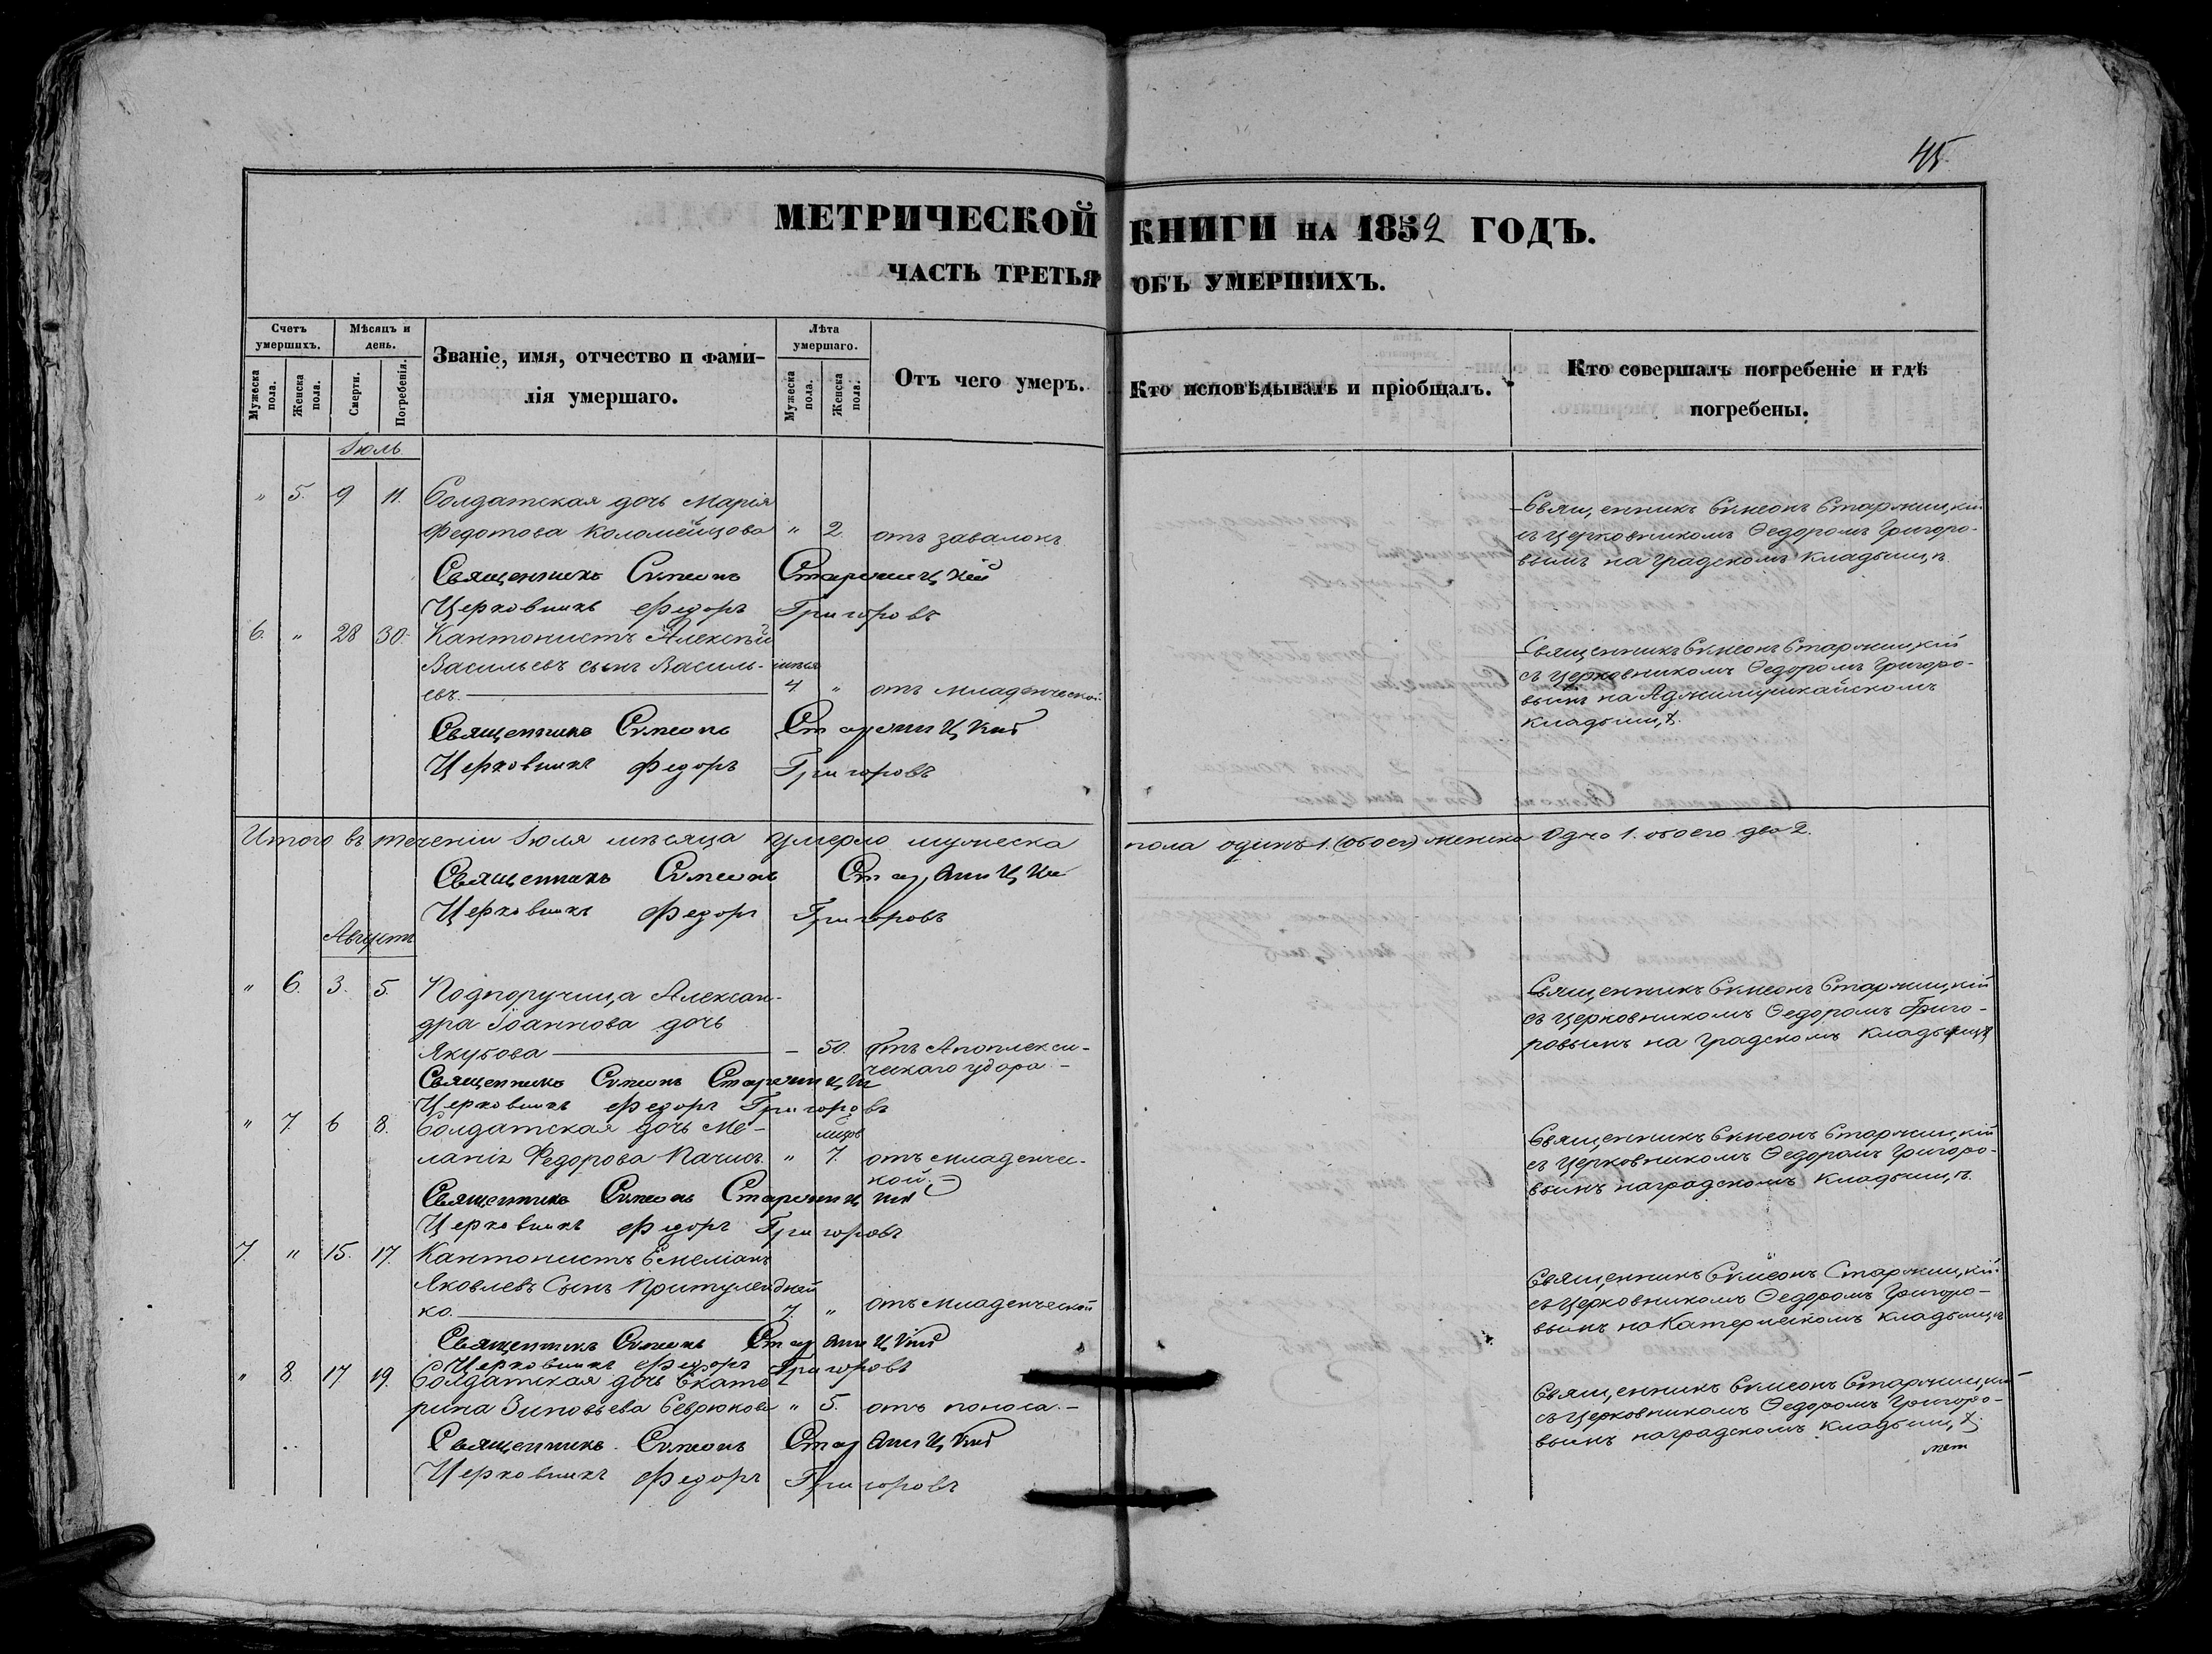 45
МЕТРИЧЕСКОЙ КНИГИ НА 1852 ГОДЪ.
ЧАСТЬ ТРЕТЬЯ ОБЪ УМЕРШИХЪ.
Счетъ умершихъ.
Мужеска пола.
Женска пола.
Мѣсяцъ и день.
Смерти.
Погребенія.
Званіе, имя, отчество и фами-
лія умершаго.
Лѣта умершаго.
Мужеска пола.
Женска пола.
Отъ чего умеръ.
Кто исповѣдывалъ и пріобщалъ.
Кто совершалъ погребеніе и гдѣ
погребены.
Іюль
" 5. 9 11. Солдатская дочь Марія
Федотова Коломейцова " 2. отъ завалокъ
Священникъ Сѵмеонъ Старжицкій
съ церковникомъ Ѳедоромъ Григоро-
вымъ на градскомъ кладбищѣ.
Священникъ Сѵмеонъ Старжицкій
Церковникъ Федоръ Григоровъ
6. " 28 30. Кантонистъ Алексѣй
Васильевъ сынъ Василь-
евъ. 4 " отъ младенческой
Священникъ Сѵмеонъ Старжицкій
съ церковникомъ Ѳедоромъ Григоро-
вымъ на Аджимушкайскомъ
кладбищѣ.
Священникъ Сѵмеонъ Старжицкій
Церковникъ Федоръ Григоровъ
Итого въ теченіи Іюля мѣсяца умерло мужеска пола одинъ 1. (обоего) женска одна 1. обоего два 2.
Священникъ Сѵмеонъ Старжицкій
Церковникъ Федоръ Григоровъ
Августъ
" 6. 3. 5. Подпоручица Алексан-
дра Іоаннова дочь
Якубова — 50. отъ Апоплекси-
ческаго удара —
Священникъ Сѵмеонъ Старжицкій
съ церковникомъ Ѳедоромъ Григо-
ровымъ на градскомъ кладбищѣ
Священникъ Сѵмеонъ Старжицкій
Церковникъ Федоръ Григоровъ
" 7. 6 8. Солдатская дочь Ме-
ланія Федорова " 7. отъ младенчес-
кой. —
Священникъ Сѵмеонъ Старжицкій
съ церковникомъ Ѳедоромъ Григоро-
вымъ на градскомъ кладбищѣ.
Священникъ Сѵмеонъ Старжицкій
Церковникъ Федоръ Григоровъ
7. " 15. 17. Кантонистъ Емеліанъ
Яковлевъ сынъ Притулен- дней
ко. 7. " отъ младенческой
Священникъ Сѵмеонъ Старжицкій
съ церковникомъ Ѳедоромъ Григоро-
вымъ на Катерлескомъ кладбищѣ
Священникъ Сѵмеонъ Старжицкій
Церковникъ Федоръ Григоровъ
" 8. 17 19. Солдатская дочь Екате
рина Зиновьева Севрюкова " 5. отъ поноса. —
Священникъ Сѵмеонъ Старжицкій
съ церковникомъ Ѳедоромъ Григоро-
вымъ на градскомъ кладбищѣ.
Священникъ Сѵмеонъ Старжицкій
Церковникъ Федоръ Григоровъ